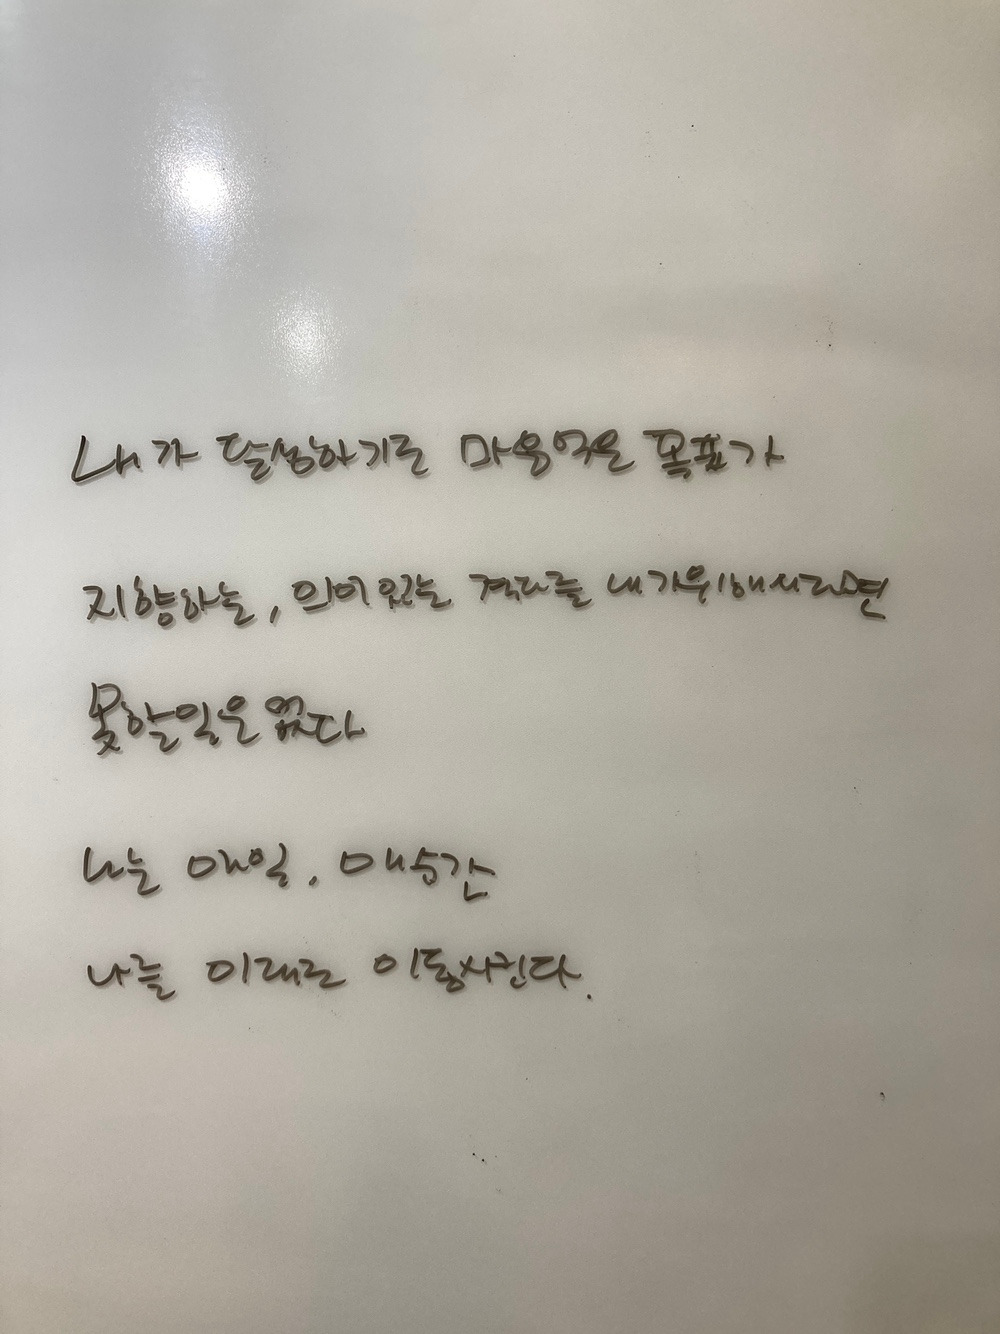 내가 달성하기로 마음먹은 목표가
지향하는, 의미 있는 결과를 내기 위해서라면
못할 일은 없다
나는 매일, 매순간
나를 미래로 이동시킨다.